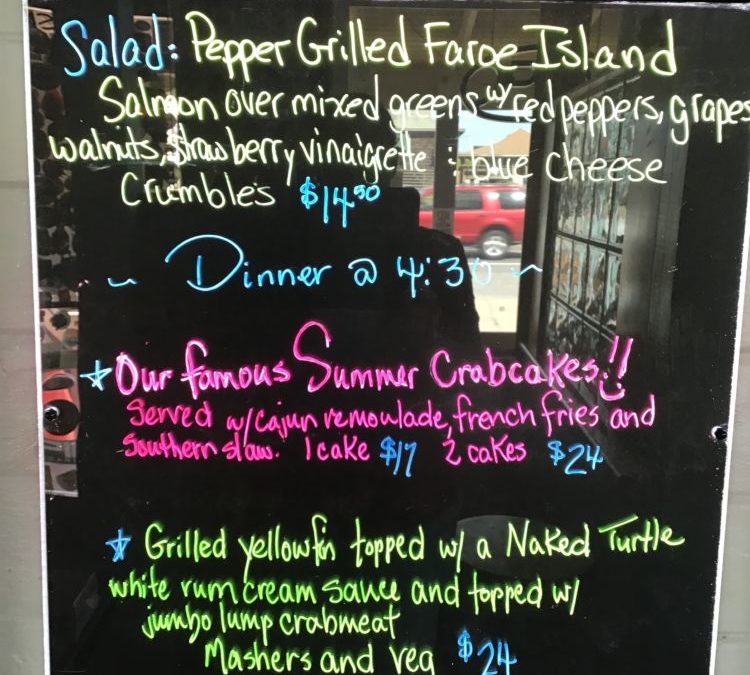 Salad: Pepper Grilled Faroe Island
Salmon over mixed greens w/ red peppers, grapes
walnuts, strawberry vinaigrette : blue cheese
Crumbles $14.50
~ Dinner @ 4:30 ~
Our famous Summer Crabcakes!!
Served w/ Cajun remoulade, french fries and
Southern slaw. 1 cake $17 2 cakes $24
Grilled yellowfin topped w/ a Naked Turtle
white rum cream sauce and topped w/
jumbo lump crabmeat
Mashers and veg $24